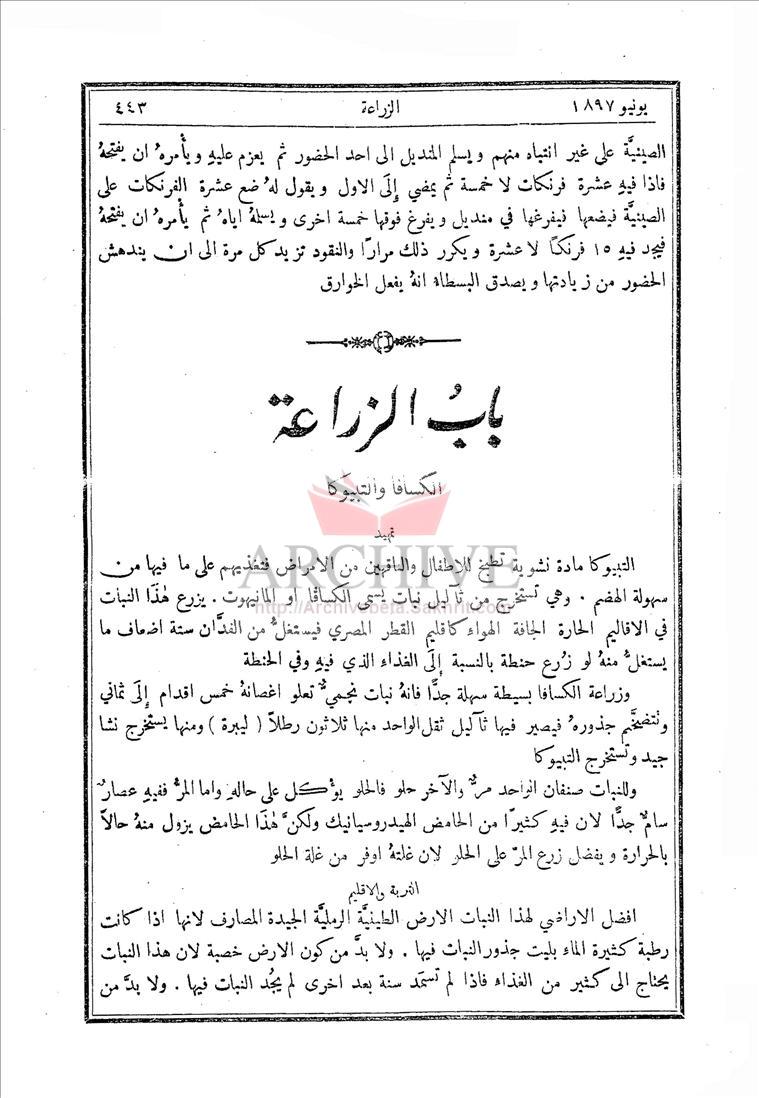 يونيو ١٨٩٧ الزراعة ٤٤٣
الصينيَّة على غير انتباه منهم ويسلم المنديل الى احد الحضور ثم يعزم عليهِ ويأمرهُ ان يفتحهُ
فاذا فيهِ عشرة فرنكات لا خمسة ثم يمضي إلَى الاول ويقول لهُ ضع عشرة الفرنكات على
الصينيَّة فيضعها فيفرغها في منديل ويفرغ فوقها خمسة اخرى ويسلمهُ اياهُ ثم يأمرهُ ان يفتحهُ
فيجد فيهِ ١٥ فرنكاً لا عشرة ويكرر ذلك مرارًا والنقود تزيد كل مرة الى ان يندهش
الحضور من زيادتها ويصدق البسطاء انهُ يفعل الخوارق
بابُ الزراعة
الكسافا والتبيوكا
تمهيد
التبيوكا مادة نشوية تطبخ للاطفال والناقهين من الامراض فتغذيهم على ما فيها من
سهولة الهضم . وهي تستخرج من ثآليل نبات يسمى الكسافا او المانيهوت . يزرع هٰذا النبات
في الاقاليم الحارة الجافة الهواء كاقليم القطر المصري فيستغلُّ من الفدَّان ستة اضعاف ما
يستغلُّ منهُ لو زُرع حنطة بالنسبة إلَى الغذاء الذي فيهِ وفي الحنطة
وزراعة الكسافا بسيطة سهلة جدًّا فانهُ نبات نجميٌّ تعلو اغصانهُ خمس اقدام إلَى ثماني
وتتضخَّم جذورهُ فيصير فيها ثآليل ثقل الواحد منها ثلاثون رطلاً ( ليبرة ) ومنها يستخرج نشا
جيد وتستخرج التبيوكا
وللنبات صنفان الواحد مرٌّ والآخر حلو فالحلو يؤكل على حالهِ واما المرُّ ففيهِ عصارٌ
سامٌّ جدًّا لان فيهِ كثيرًا من الحامض الهيدروسيانيك ولكنَّ هٰذا الحامض يزول منهُ حالاً
بالحرارة ويفضل زرع المرّ على الحلو لان غلتهُ اوفر من غلة الحلو
التربة والاقليم
افضل الاراضي لهذا النبات الارض الطينيَّة الرمليَّة الجيدة المصارف لانها اذا كانت
رطبة كثيرة الماء بليت جذور النبات فيها . ولا بدَّ من كون الارض خصبة لان هذا النبات
يحتاج الى كثير من الغذاء فاذا لم تسمَّد سنة بعد اخرى لم يجُد النبات فيها . ولا بدَّ من
ARCHIVE
http://Archivebeta.Sakhrit.com